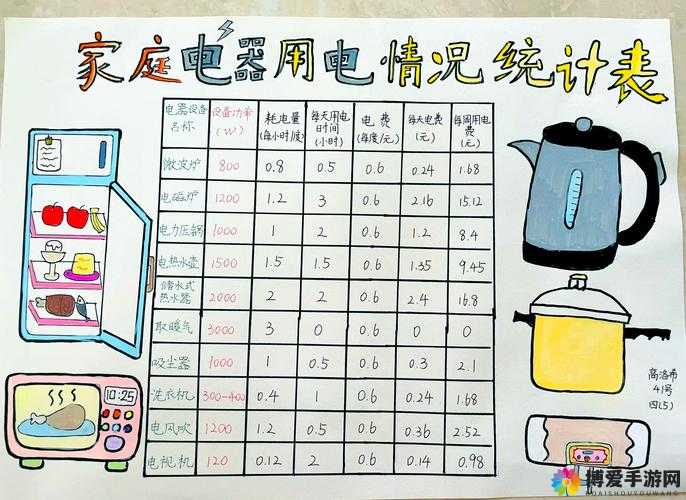 家庭电器用电情况统计表
电器设备名称 设备功率(W) 耗电量(每小时/度) 每天用电时间(小时) 电费(每度/元) 每天电费(元) 每周用电费(元)
微波炉 800 0.8 0.5 0.6 0.24 1.68
电磁炉 1200 1.2 3 0.6 2.16 15.12
电力压锅 1000 1 2 0.6 1.2 8.4
电热水壶 1500 1.5 1.5 0.6 1.35 9.45
储水式热水器 2000 2 2 0.6 2.4 16.8
取暖气 3000 3 0 0.6 0 0
吸尘器 1000 1 0.5 0.6 0.3 2.1
洗衣机 300-400 0.4 1 0.6 0.24 1.68
电风吹 1200 1.2 0.5 0.6 0.36 2.52
电视机 120 0.12 2 0.6 0.14 0.98
10:25
高洛希
41号
四(5)
博爱手游网
BOAISHOUYOUWANG